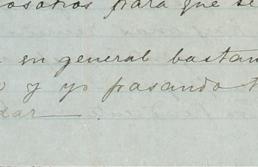 osotros para que se
en general bastan
y yo pasando t
dar —.